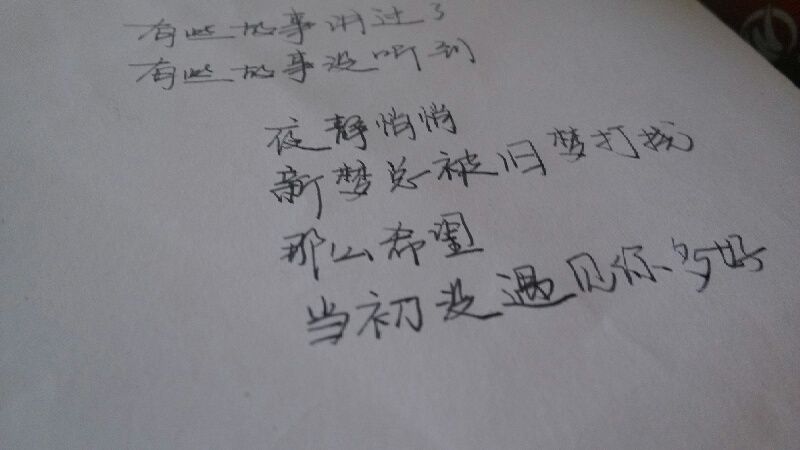 有些故事讲过了
有些故事没听到
夜静悄悄
新梦总被旧梦打扰
那么希望
当初没遇见你多好